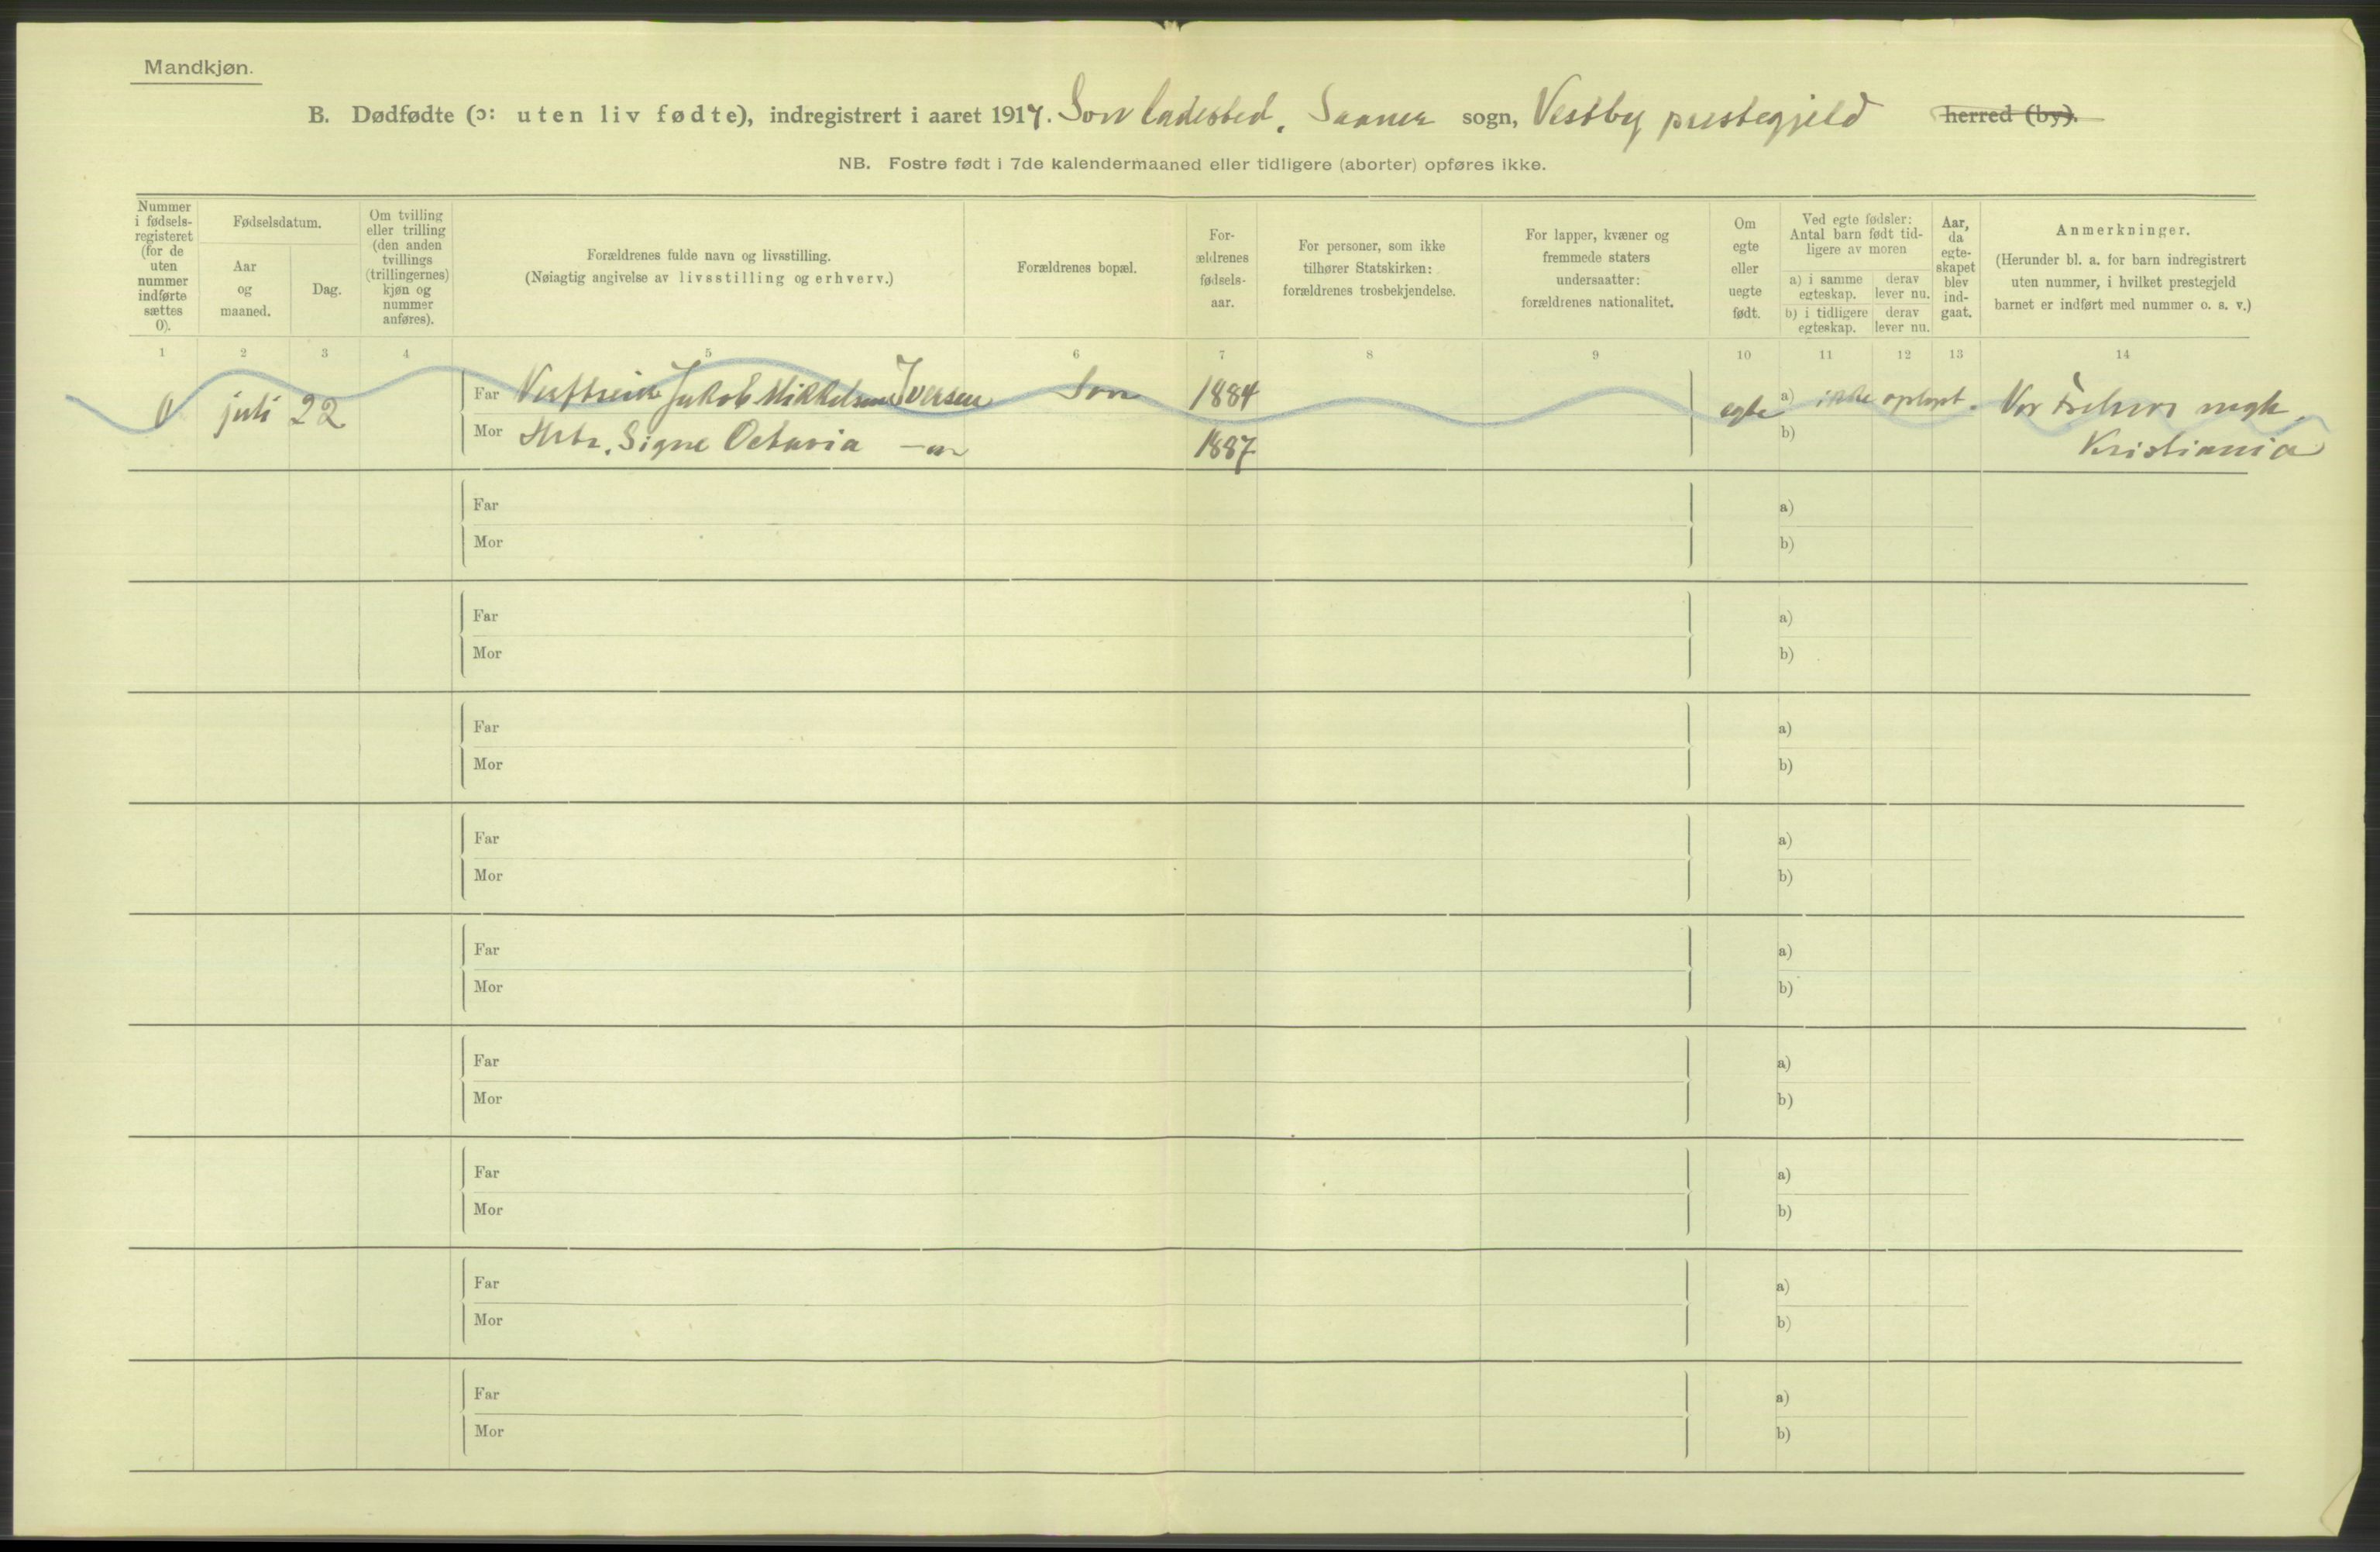 Mandkjøn.
B. Dødfødte (ɔ: uten liv fødte), indregistrert i aaret 1917. Son ladested, Saaner sogn, Vestby prestegjeld herred (by).
NB. Fostre født i 7de kalendermaaned eller tidligere (aborter) opføres ikke.
Nummer i fødsels-registeret (for de uten nummer indførte sættes 0).
Fødselsdatum.
Aar og maaned.
Dag.
Om tvilling eller trilling (den anden tvillings (trillingernes) kjøn og nummer anføres).
Forældrenes fulde navn og livsstilling.
(Nøiagtig angivelse av livsstilling og erhverv.)
Forældrenes bopæl.
For-ældrenes fødsels-aar.
For personer, som ikke tilhører Statskirken: forældrenes trosbekjendelse.
For lapper, kvæner og fremmede staters undersaatter: forældrenes nationalitet.
Om egte eller uegte født.
Ved egte fødsler: Antal barn født tid-ligere av moren
a) i samme egteskap.
derav lever nu.
b) i tidligere egteskap.
derav lever nu.
Aar, da egte-skapet blev ind-gaat.
Anmerkninger.
(Herunder bl. a. for barn indregistrert uten nummer, i hvilket prestegjeld barnet er indført med nummer o. s. v.)
1 2 3 4 5 6 7 8 9 10 11 12 13 14
0 juli 22 Far Jakob Mikkelsen Iversen Son 1884 egte a) ikke oplyst. Vor Frelsers mgh.
Mor Signe Octavia —en 1887 b) Kristiania
Far a)
Mor b)
Far a)
Mor b)
Far a)
Mor b)
Far a)
Mor b)
Far a)
Mor b)
Far a)
Mor b)
Far a)
Mor b)
Far a)
Mor b)
Far a)
Mor b)